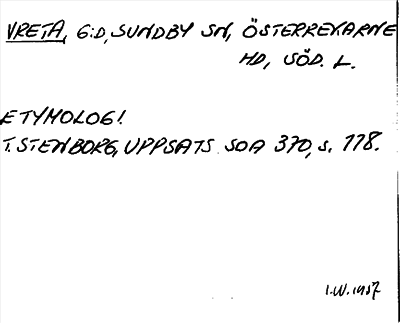 VRETA, G:D, SUNDBY SN, ÖSTERREKARNE
HD, SÖD. L.
ETYMOLOG!
T. STENBORG, UPPSATS SOA 370, s. 118.
I.W. 1987